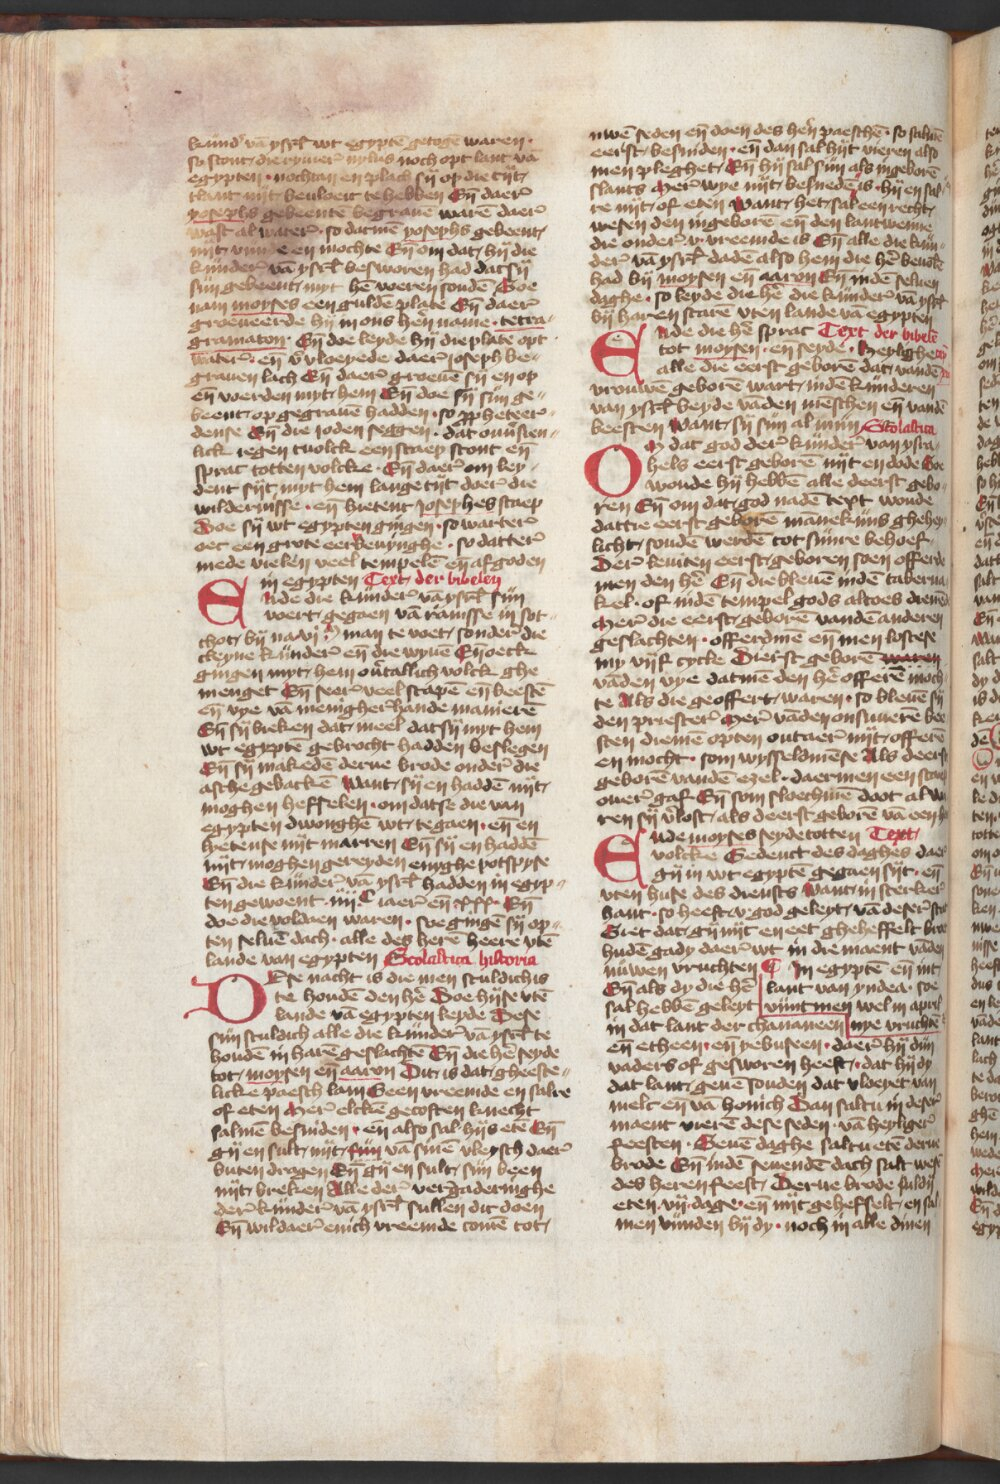 kindẽ vã ysrl̃ wt egyptẽ getogẽ waren ·
so stont / die ryuier̃ nylus noch opt lant vã
egypten · nochtan en plach sij op die tijt /
tlant nijt beuloeit te hebben Eñ daer̃
yosephs gebeente begrauẽ warẽ daer̃
wast al water̃ · so datmẽ yosephs gebeent /
nijt / en mochte Eñ om dat / hij die
kinder̃ vã ysrl̃ besworen had dat sij
sijn gebeent / myt hẽ voeren soudẽ Doe
nam moyses een guldẽ plate Eñ daer̃
groeueerde hij in ons hẽn name · tetra-
gramaton · Eñ doe leyde hij die plate opt
water̃ · eñ v̓vloepede daer̃ ioseph be-
grauen lach Eñ daer̃ groeuẽ sij en op
eñ voerden myt / hem Eñ doe sij sijn ge-
beent / op gegrauẽ hadden · so ꝓpheteer-
dense Eñ die ioden seggen · dat ouṽsien-
lick iegen tuolck een staey stont eñ
sprac totten volcke · Eñ daer̃ om ley-
dent sijt / myt hem lange tijt doer̃ die
wildernisse · en hietent iosephes staep
Doe sij wt egypten gingen · so warter̃
oec een grote eerdbeuynghe · so datter̃
mede vielen veel tempelẽ eñ afgoden
in egypten Text / der bibelen
Ende die kinder̃ vã ysrl̃ sijn
voert / gegaen vã ramisse in sot-
chot / bij na vj . man te voet / sonder̃ die
cleyne kinder̃ en die wyuẽ Eñ oeck
gingen myt / hem oũtallich volck ghe
menget Eñ seer̃ veel scapẽ eñ beestẽ
eñ vye vã menigher̃hande manierẽ
Eñ sij bieken dat / meel dat sij myt hem
wt egyptẽ gebrocht hadden beslegen
Eñ sij makedẽ derue brode onder̃ die
assche gebackẽ Want / sij en haddẽ nijt /
moghen heffelen · om datse die van
egypten dwonghẽ wt / te gaen · eñ en
lietense nijt marren Eñ sij en haddẽ
nijt / moghen gereyden enighe potspyse
Eñ die kinder̃ vã ysrl̃ hadden in egyp-
ten gewoent iiij C iaer̃ eñ xxx · Eñ
doe die voldaen waren · soe gingẽ sij op-
ten seluẽ dach · alle des herẽ heere vtẽ
lande van egypten Scolastica historia
Dese nacht is die men sculdich is
te houdẽ den hẽ Doe hijse vtẽ
lande vã egypten leyde Dese
sijn sculdich alle die kinder̃ vã ysrl̃ te
houdẽ in harẽ geslachtẽ Eñ die hẽ seyde
tot / moysen eñ aaron Dit is dat / gheeste-
licke paesch lam Geen vreemde en salre
of eten Mer̃ elckẽ gecosten knecht
salmẽ besniden · eñ also sal hijs etẽ Eñ
gij en sult / nijt / sijn vã sinẽ vleysch daer̃
buten dragen Eñ gij en sult / sijn been
nijt / breken Alle der̃ vergaderinghe
der̃ kinder̃ vã ysrl̃ sullen dit doen
Eñ wildaer̃ enich vreemde comẽ tot /
uwẽ seden eñ doen des hẽn paeschẽ · so salmẽ
eerst / besniden · eñ dan sal hijt vieren also
men pleghet / Eñ hij sal sijn als ingeborẽ
slants Mer̃ wye nijt / besnedẽ is · hij en sal
re nijt / of eten Want / het / sal een recht /
wesen den ingeborẽ eñ den lantwenre
die onder̃ v vreemde is Eñ alle die kin-
der̃ vã ysrl̃ dadẽ also hem die hẽ beuolẽ
had bij moysen eñ aaron Eñ indẽ seluen
daghe · so leyde die hẽ die kinder̃ vã ysrl̃
bij haren scare vten lande vã egypten
Ende die hẽ sprac Text der bibelẽ
tot moysen · eñ seyde · Heylighe
alle die eerst geborẽ dat / vandẽ
vrouwẽ geborẽ wart / indẽ kinderen
van ysrl̃ beyde vãden mẽschen eñ vandẽ
beesten Want / sij sijn al mijn Scolastica
Om dat god der̃ kinder̃ van ysra-
hels eerst geborẽ nijt en dode Doe
woude hij hebbẽ alle deerst gebo-
ren Eñ om dat / god nadẽ text woude
dattie eerst geborẽ mãnekijns ghehey
licht / soudẽ werdẽ tot sinre behoef
Der̃ leuiten eerst / geboren soen offerde
men den hẽ Eñ die bleuẽ indẽ taberna
kel · of indẽ tempel gods altoes dienẽde
Mer̃ die eerst / geborẽ vandẽ anderen
geslachten · offerdmẽ eñ men lostese
my vijf cycle Dierst geborẽ waren
vãden vye datmẽ den hẽ offerẽ moch
te Als die geoffert / waren · so bleuẽ sij
den priester̃ Mer̃ vãden onsuuerẽ bee
sten diemẽ opten outaer̃ nijt / offerẽ
en mocht · som wysseldmẽse Als deerst
geborẽ vandẽ ezel · daermen een scaep
ouer̃ gaf Eñ som sloechmẽ doot al wa
ren sij v̓lost / als deerst geborẽ vã den
Ende moyses seyde totten Text /
volcke Gedenct des daghes daer̃
gij in wt egyptẽ gegaen sijt · eñ
vten huse des diensts Want / in stercker̃
hant · so heeft / v god geleyt / vã deser̃
Siet dat / gij nijt en eet gheheffelt broet
hudẽ gady daer̃ wt in die maent vãdẽ
nuwen vruchten ¶ In egyptẽ eñ int
Eñ als dy die hẽ lant van yndea · soe
sal hebbẽ geleyt vijntmen wel in april
in dat lant der chananeen nye vruchtẽ
eñ etheen · eñ yebuseen · daer̃ hij dijn
vaders of gesworen heeft / · dat hij dy
dat lant / geuẽ souden dat vloeyet van
melc eñ vã honich Dan saltu in deser̃
maent vierẽ dese seden · vã heyliger̃
feesten · Seuẽ daghe saltu etẽ derue
brode Eñ indẽ seuendẽ dach salt wesẽ
des heren feest / Derue brode suldij
eten · vij · dage · eñ nijt geheffelt / en sal
men vinden bij dy · noch in alle dinen